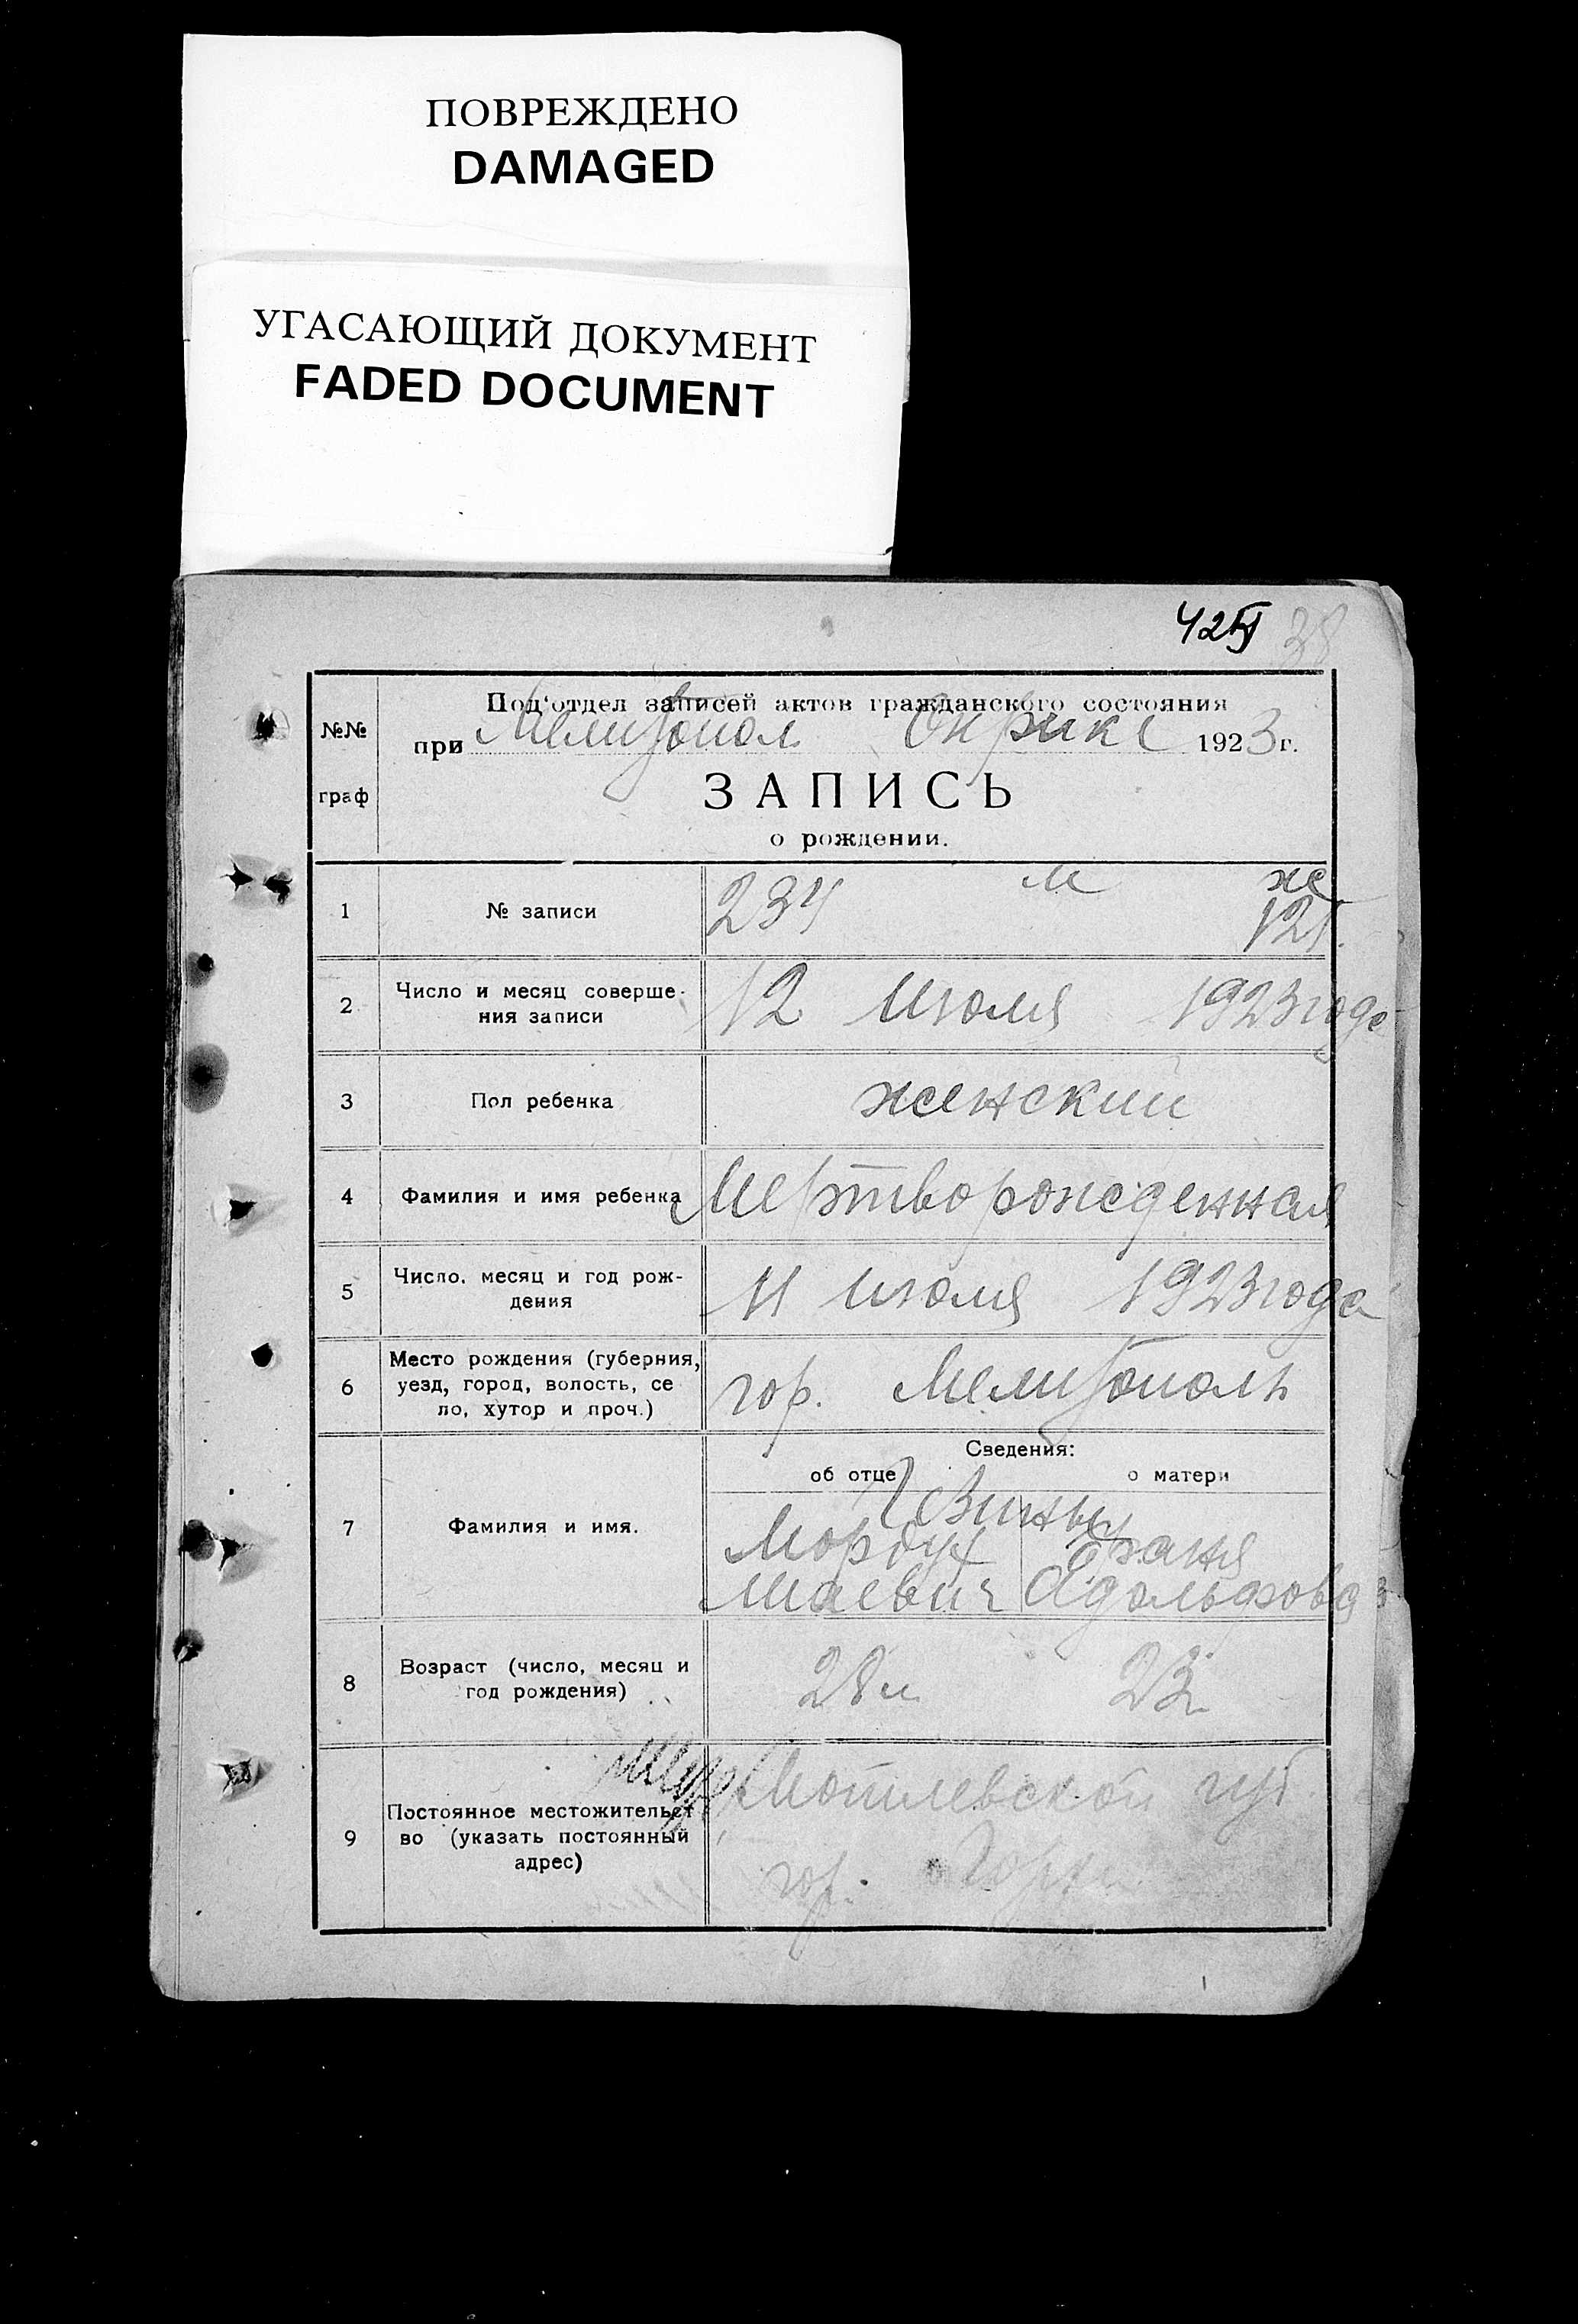 ПОВРЕЖДЕНО
DAMAGED
УГАСАЮЩИЙ ДОКУМЕНТ
FADED DOCUMENT
38
№№ граф
Под'отдел записей актов гражданского состояния
при Мелитопол. Окрике 1923 г.
ЗАПИСЬ
о рождении.
м ж
1 № записи 234 121.
2 Число и месяц соверше-
ния записи 12 июля 1923 года
3 Пол ребенка женский
4 Фамилия и имя ребенка Мертворожденная
5 Число, месяц и год рож-
дения 11 июля 1923 года
6 Место рождения (губерния,
уезд, город, волость, се
ло, хутор и проч.) гор. Мелитополь
Сведения:
об отце о матери
7 Фамилия и имя.
Мордух Фаня
Маевич Адольфовна
8 Возраст (число, месяц и
год рождения) 28 л 23
9 Постоянное местожительст
во (указать постоянный
адрес) Могилевской губ.
гор. Горки